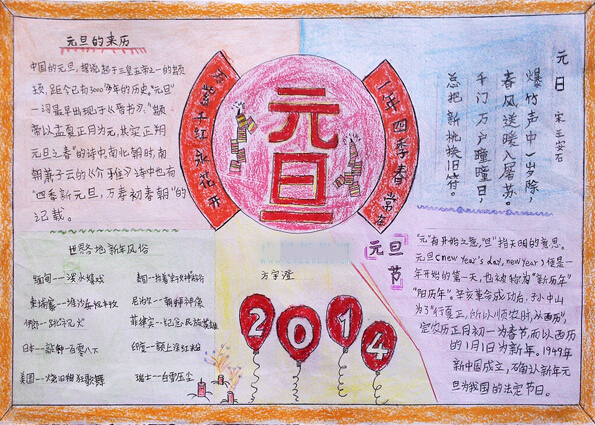 元旦的来历
中国的元旦，据说起于三皇五帝之一的颛
顼，距今已有3000多年的历史，"元旦"
一词最早出现于《晋书》："颛
帝以孟夏正月为元，其实正朔
元旦之春"的诗中，南北朝时，南
朝萧子云的《介雅》诗中也有
"四季新元旦，万寿初春朝"的
记载。
万紫千红永花开
元旦
一年四季春常在
元日
宋 王安石
爆竹声中一岁除，
春风送暖入屠苏。
千门万户曈曈日，
总把新桃换旧符。
世界各地新年风俗
缅甸——泼水嬉戏
泰国——抬着
柬埔寨——堆沙
尼泊尔——朝拜神像
伊朗——
菲律宾——纪念民族英雄
日本——敲钟一百零八下
印度——额上涂红粉
美国——烧旧狂歌舞
瑞士——白雪压尘
方宇澄
2014
元旦节
"元"有开始之意，"旦"指天明的意思。
元旦（new year's day, new year）便是一
年开始的第一天，也被称为"新历年"
"阳历年"。辛亥革命成功后，孙中山
为了"行夏正，所以顺农时，从西历"，
定农历正月初一为春节，而以西历
的1月1日为新年。1949年
新中国成立，石确认新年元
旦为我国的法定节日。